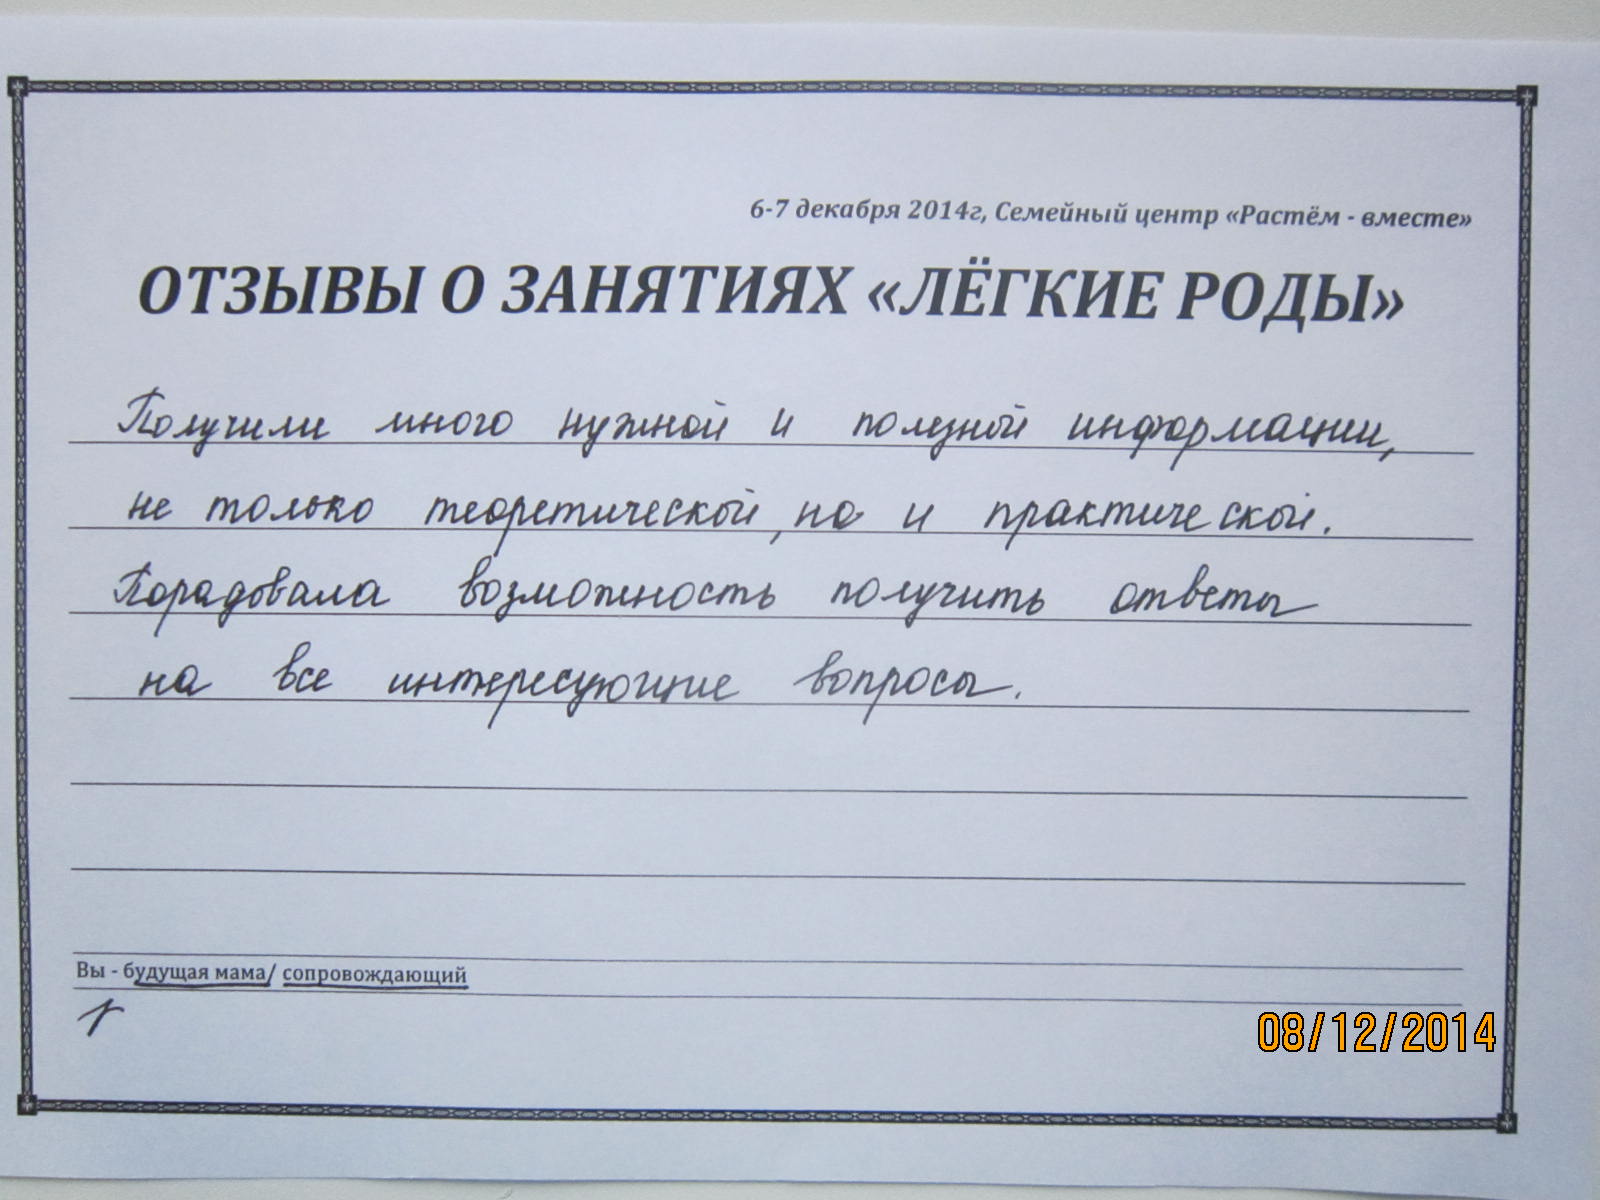 6-7 декабря 2014г, Семейный центр «Растём - вместе»
ОТЗЫВЫ О ЗАНЯТИЯХ «ЛЁГКИЕ РОДЫ»
Получили много нужной и полезной информации,
не только теоретической, но и практической.
Порадовала возможность получить ответы
на все интересующие вопросы.
Вы - будущая мама/ сопровождающий
08/12/2014